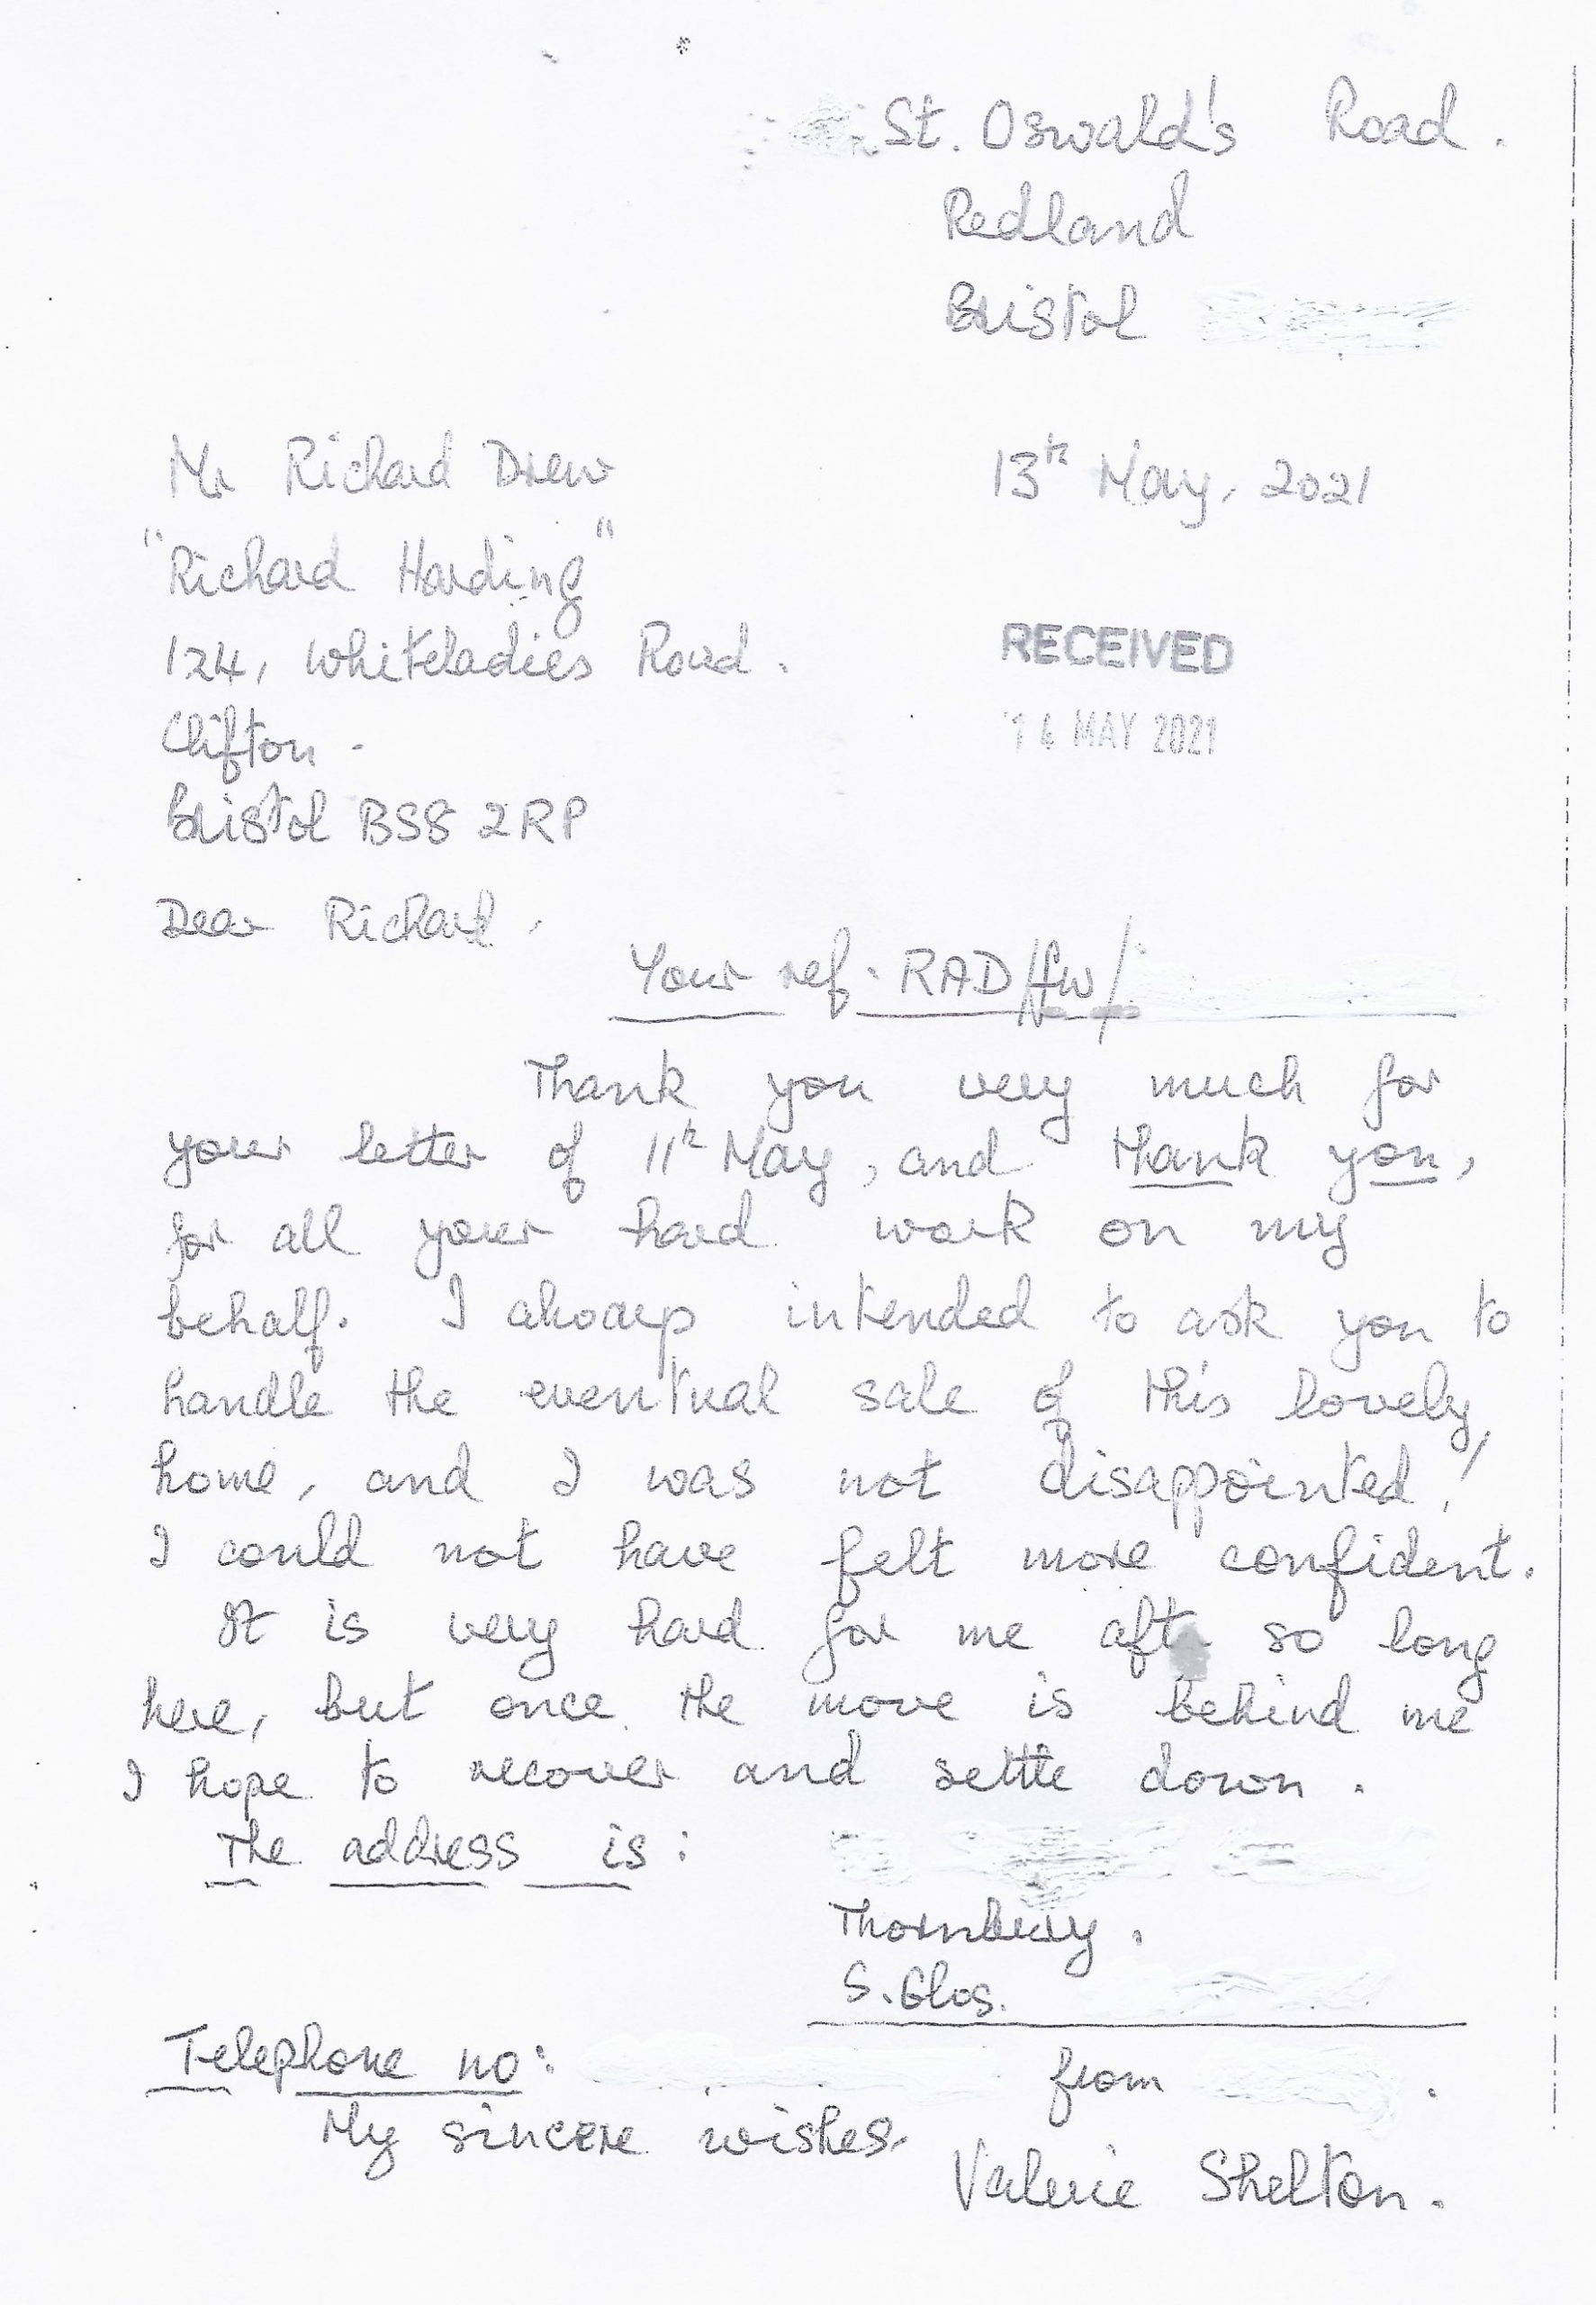 St. Oswald's Road.
Redland
Bristol
Mr Richard Drew
13th May, 2021
"Richard Harding"
124, Whiteladies Road.
RECEIVED
14 MAY 2021
Clifton.
Bristol BS8 2RP
Dear Richard,
Your ref. RAD/fw/
Thank you very much for
your letter of 11th May, and thank you,
for all your hard work on my
behalf. I always intended to ask you to
handle the eventual sale of this lovely
home, and I was not disappointed!
I could not have felt more confident.
It is very hard for me after so long
here, but once the move is behind me
I hope to recover and settle down.
The address is:
Thornbury.
S. Glos.
Telephone no: from .
My sincere wishes.
Valerie Shelton.